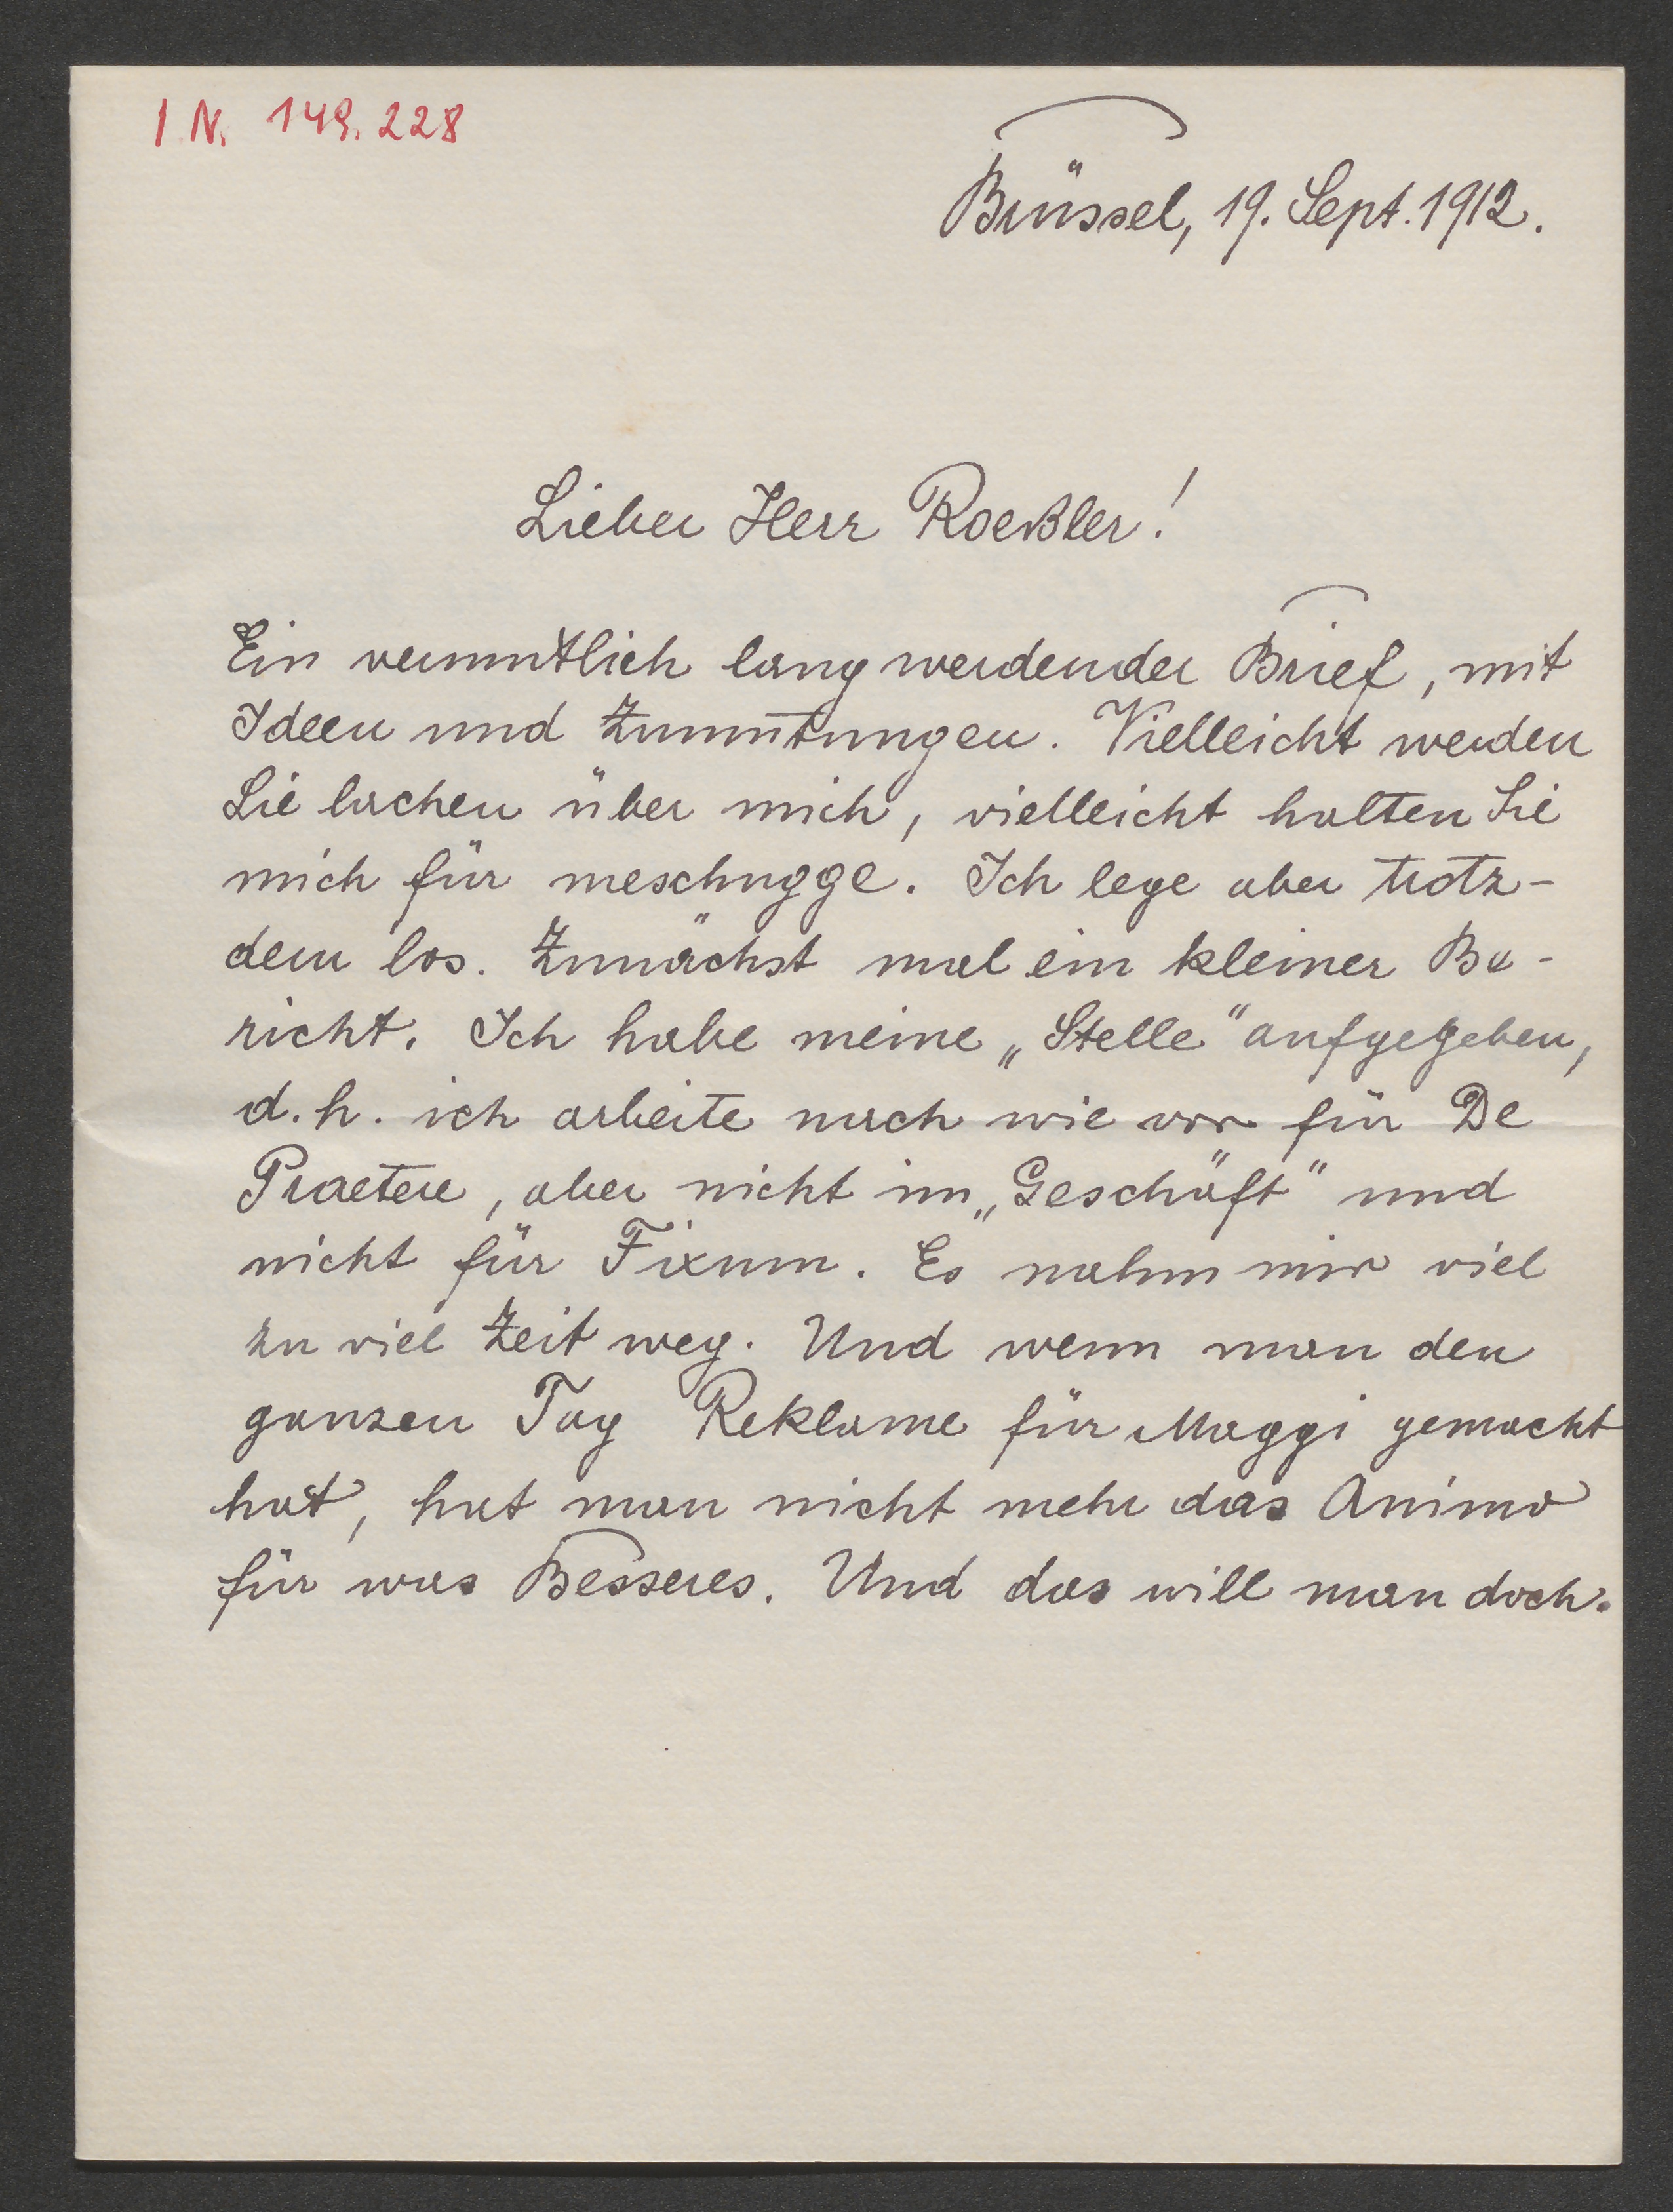 I.N. 149.228
Brüssel, 19. Sept. 1912.
Lieber Herr Roeßler!
Ein vermutlich lang werdender Brief, mit
Ideen und Zumutungen. Vielleicht werden
Sie lachen über mich, vielleicht halten Sie
mich für meschugge. Ich lege aber trotz-
dem los. Zunächst mal ein kleiner Be-
richt. Ich habe meine „Stelle“ aufgegeben,
d.h. ich arbeite nach wie vor für De
Praetere, aber nicht im „Geschäft“ und
nicht für Fixum. Es nahm mir viel
zu viel Zeit weg. Und wenn man den
ganzen Tag Reklame für Maggi gemacht
hat, hat man nicht mehr das Animo
für was Besseres. Und das will man doch.